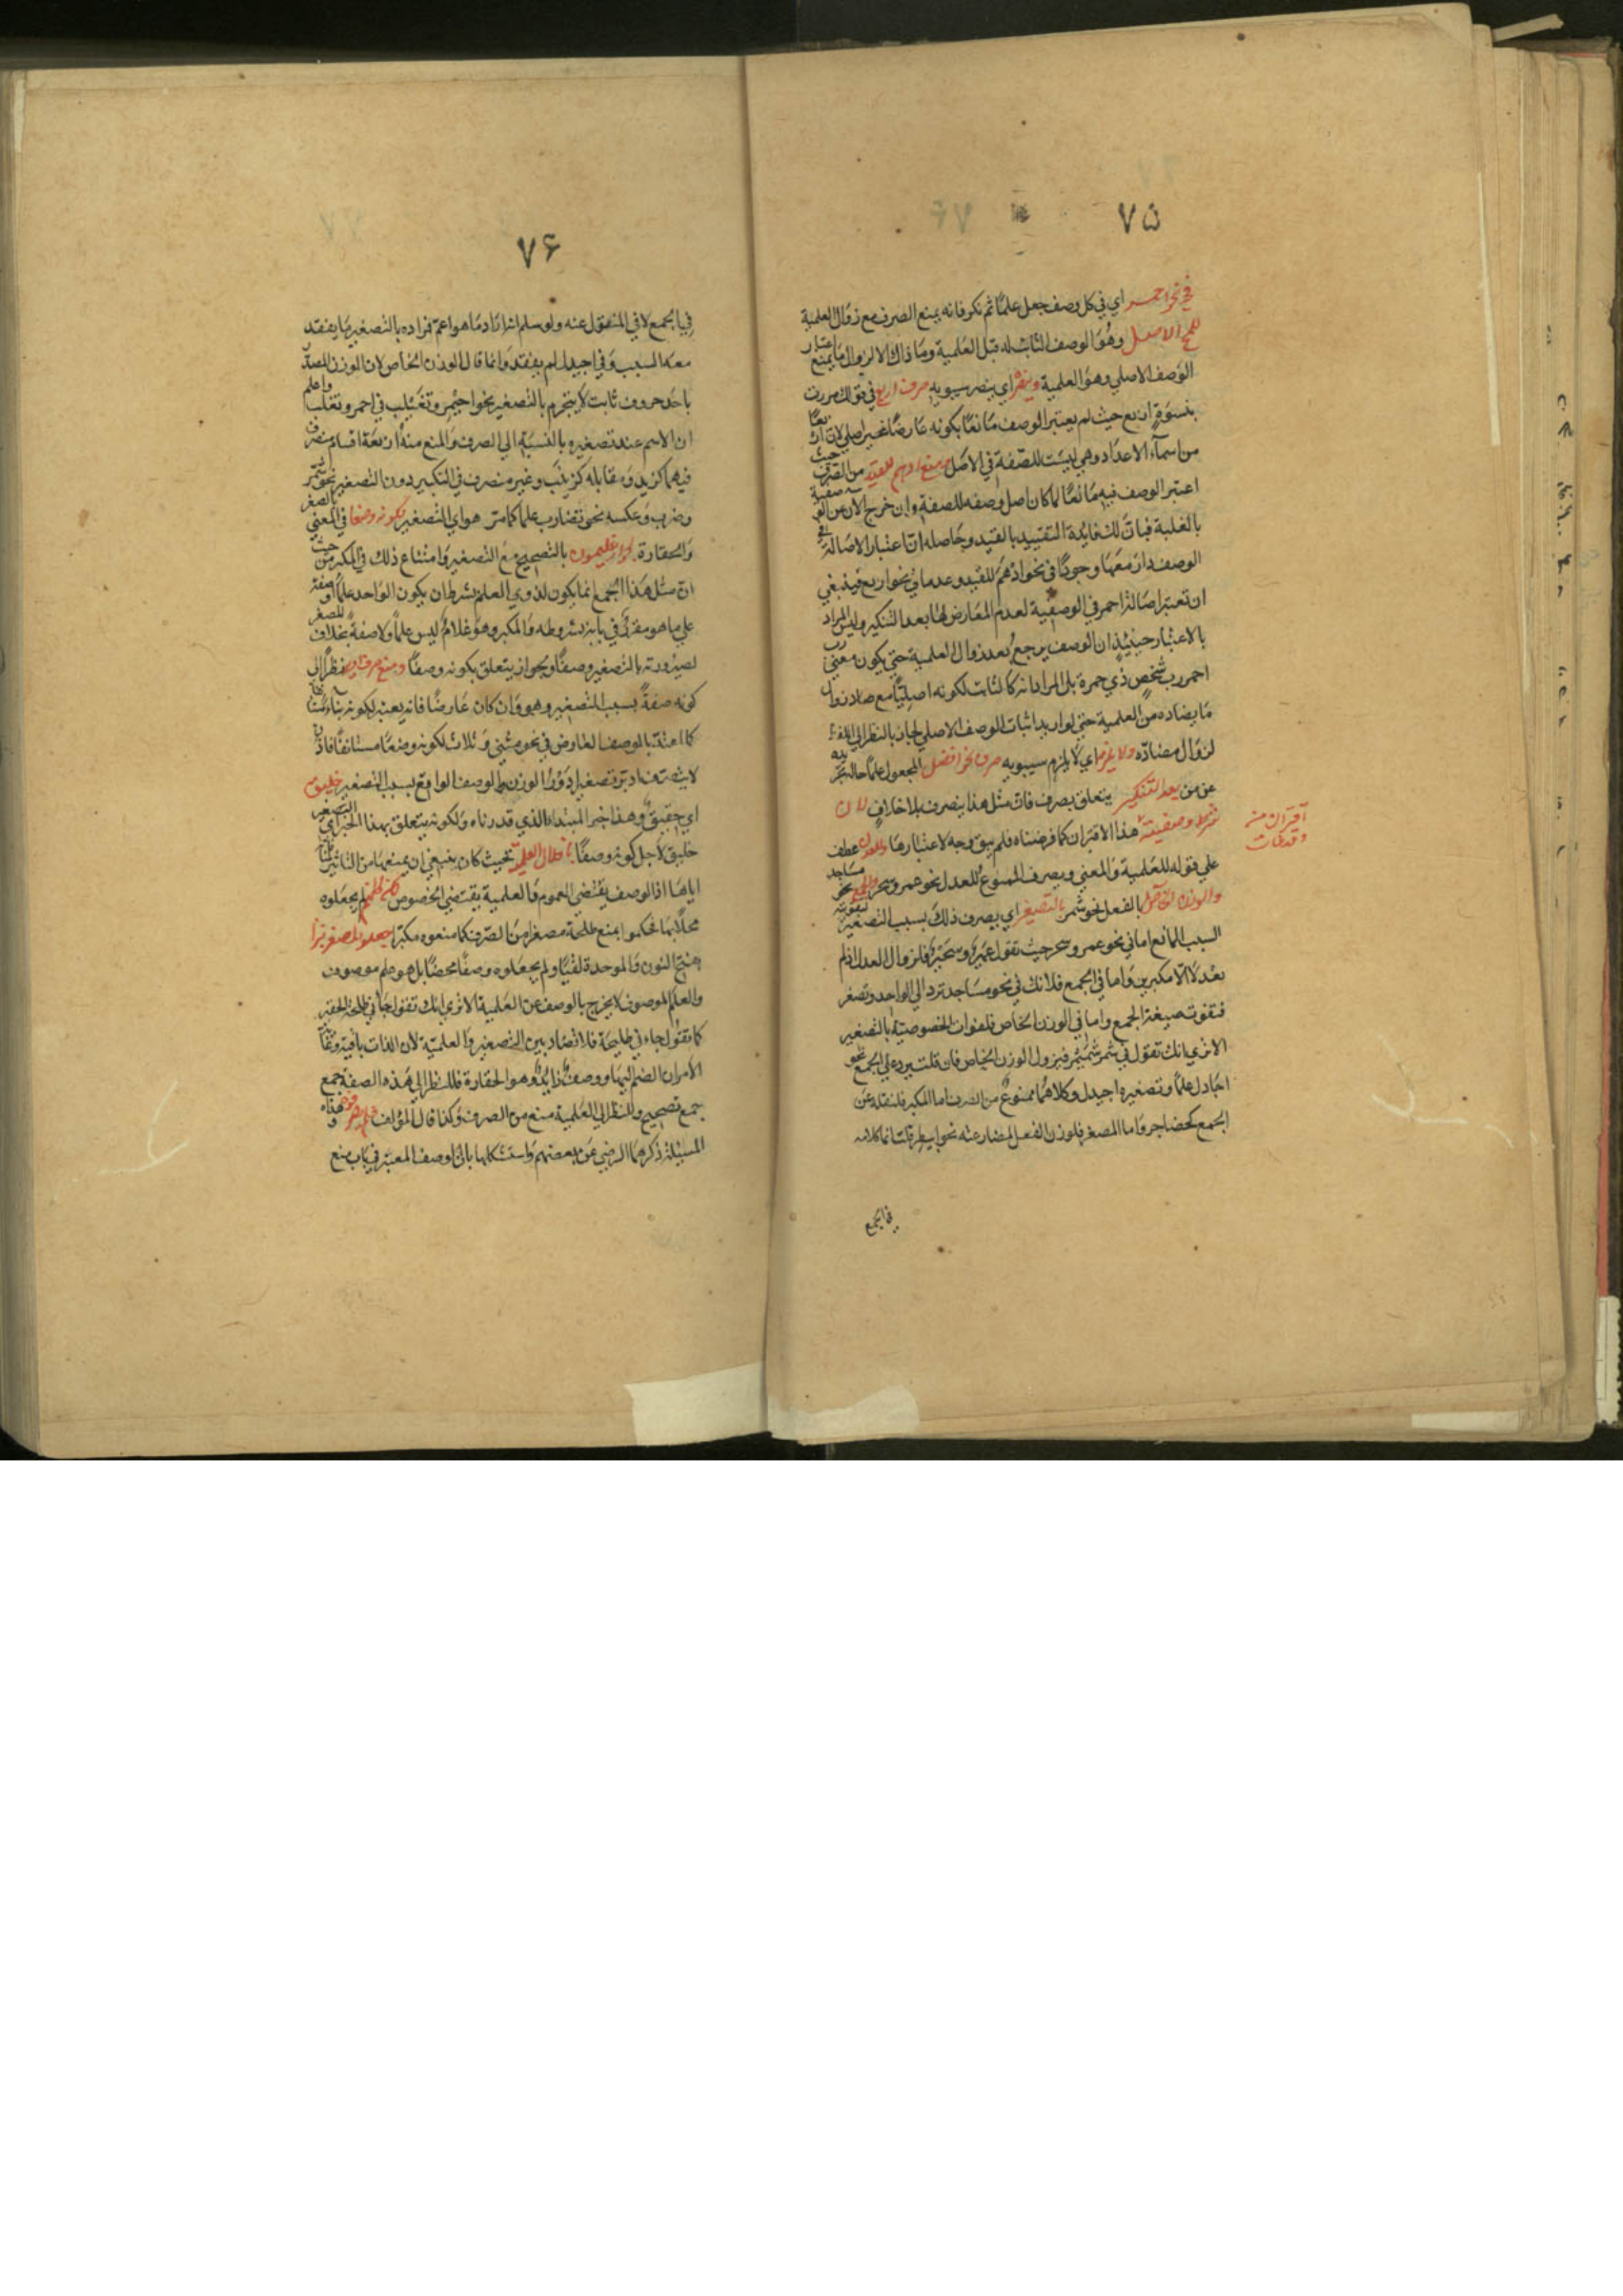 ٧٥
في نحو احمر اي في كل وصف جعل علمًا ثم نكر فانه يمنع الصرف مع زوال العلمية
للمح الاصل وهو الوصف الثابت له قبل العلمية وما ذاك الا لزوال ما يمنع اعتبار
الوصف الاصلي وهو العلمية وينصره اي ينصر سيبويه صرف اربع في قولك مررت
بنسوة اربع حيث لم يعتبر الوصف مانعًا بكونه عارضًا غير اصلي لان اربعًا
من اسماء الاعداد وهي ليست للصفة في الاصل ومنع ادهم للقيد من الصرف حيث
اعتبر الوصف فيه مانعًا لما كان اصل وصفه للصفة وان خرج الآن عن الوصفية
بالغلبة فبان لك فايدة التقييد بالقيد وحاصله ان اعتبار الاصالة في
الوصف دار معها وجودًا في نحو ادهم للقيد وعدما في نحو اربع فينبغي
ان تعتبر اصالة احمر في الوصفية لعدم المعارض لها بعد التنكير وليس المراد
بالاعتبار حينئذٍ ان الوصف يرجع بعد زوال العلمية حتى يكون معنى رب
احمر رب شخصٍ ذي حمرة بل المراد انه كالثابت لكونه اصليًا مع زوال
ما يضاده من العلمية حتى لو اريد اثبات الوصف الاصلي لجاز بالنظر الى اللفظ
لزوال مضاده ولا يلزم اي لا يلزم سيبويه صرف نحو افضل المجعول علمًا حال تجرده
عن من بعد التنكير يتعلق بصرف فان مثل هذا ينصرف بلا خلافٍ لان
شرط وصفيته هذا الاقتران كما فرضناه فلم يبق وجه لاعتبارها وللعدل عطف
اقتران من
وقد فات
على قوله للعلمية والمعنى ويصرف الممنوع للعدل نحو عمر وسحر والجمع نحو مساجد
والوزن الخاص بالفعل نحو شمر بالتصغير اي يصرف ذلك بسبب التصغير لتفويته
السبب المانع اما في نحو عمر وسحر حيث تقول عمير وسحير فلزوال العدل اذ لم
يعدلا الا مكبرين واما في الجمع فلانك في نحو مساجد ترد الى الواحد وتصغر
فتفوت صيغة الجمع واما في الوزن الخاص فلفوات الخصوصية بالتصغير
الا ترى انك تقول في شمر شمير فيزول الوزن الخاص فان قلت يرد على الجمع نحو
اجادل علمًا وتصغيره اجيدل وكلاهما ممنوع من الصرف اما المكبر فلنقله عن
الجمع كحضاجر واما المصغر فلوزن الفعل لمضارعته نحو ابيطر قلت انما كلامه
في الجمع
٧۶
في الجمع لا في المنقول عنه ولو سلم انه اراد ما هو اعم فمراده بالتصغير ما يفقد
معه السبب وفي اجيدل لم يفقد وانما قال الوزن الخاص لان الوزن المصدر
باحد حروف نأيت لا ينخرم بالتصغير نحو احيمر وتغيلب في احمر وتغلب واعلم
ان الاسم عند تصغيره بالنسبة الى الصرف والمنع منه اربعة اقسام منصرف
فيهما كزيد ومقابله كزينب وغير منصرف في التكبير دون التصغير نحو شمر
وضرب وعكسه نحو تضارب علما كما مر هو اي التصغير لكونه وصفا في المعنى
والحقارة نحو اغليمون بالتصحيح مع التصغير وامتناع ذلك في المكبر من حيث
ان مثل هذا الجمع انما يكون لذوي العلم بشرط ان يكون الواحد علمًا او صفة
على ما هو مقرر في بابه بشروطه والمكبر وهو غلام ليس علمًا ولا صفة بخلاف المصغر
لصيرورته بالتصغير وصفًا ويجوز يتعلق بكونه وصفًا ومنع صرف ادير نظرًا الى
كونه صفة بسبب التصغير وهو وان كان عارضًا فانه يعتد لكونه بناء مستأنفا
كما اعتد بالوصف العارض في نحو مثنى وثلاث لكونه وضعًا مستانفًا فاذن
لا ينصرف ادير تصغير ادور للوزن والوصف الواقع بسبب التصغير خليق
اي حقيق وهذا خبر المبتدا الذي قدرناه ولكونه يتعلق بهذا الخبر اي التصغير
خليق لاجل كونه وصفًا بابطال العلمية بحيث كان ينبغي ان يمنعها من التأثير لمنافاته
اياها اذ الوصف يقتضي العموم والعلمية يقتضي الخصوص لكنهم لم يجعلوه
مخلا بها فحكموا بمنع طلحة مصغرا من الصرف كما منعوه مكبرا جعلوا المصغر نبزا
بفتح النون والموحدة لقبًا ولم يجعلوه وصفًا محضًا بل هو علم موصوف
والعلم الموصوف لا يخرج بالوصف عن العلمية الا ترى انك تقول جاءني طلحة الحقير
كما تقول جاءني طليحة فلا تضاد بين التصغير والعلمية لان الذات باقية وغاية
الامر ان انضم اليها وصف زايد وهو الحقارة فللنظر الى هذه الصفة جمع
جمع تصحيح وللنظر الى العلمية منع من الصرف وكذا قال المؤلف وهذه
المسئلة ذكرها الرضي عن بعضهم واستشكلها بان الوصف المعتبر في باب منع